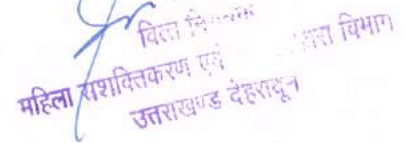 वित्त
महिला सशक्तिकरण एवं विभाग
उत्तराखण्ड देहरादून